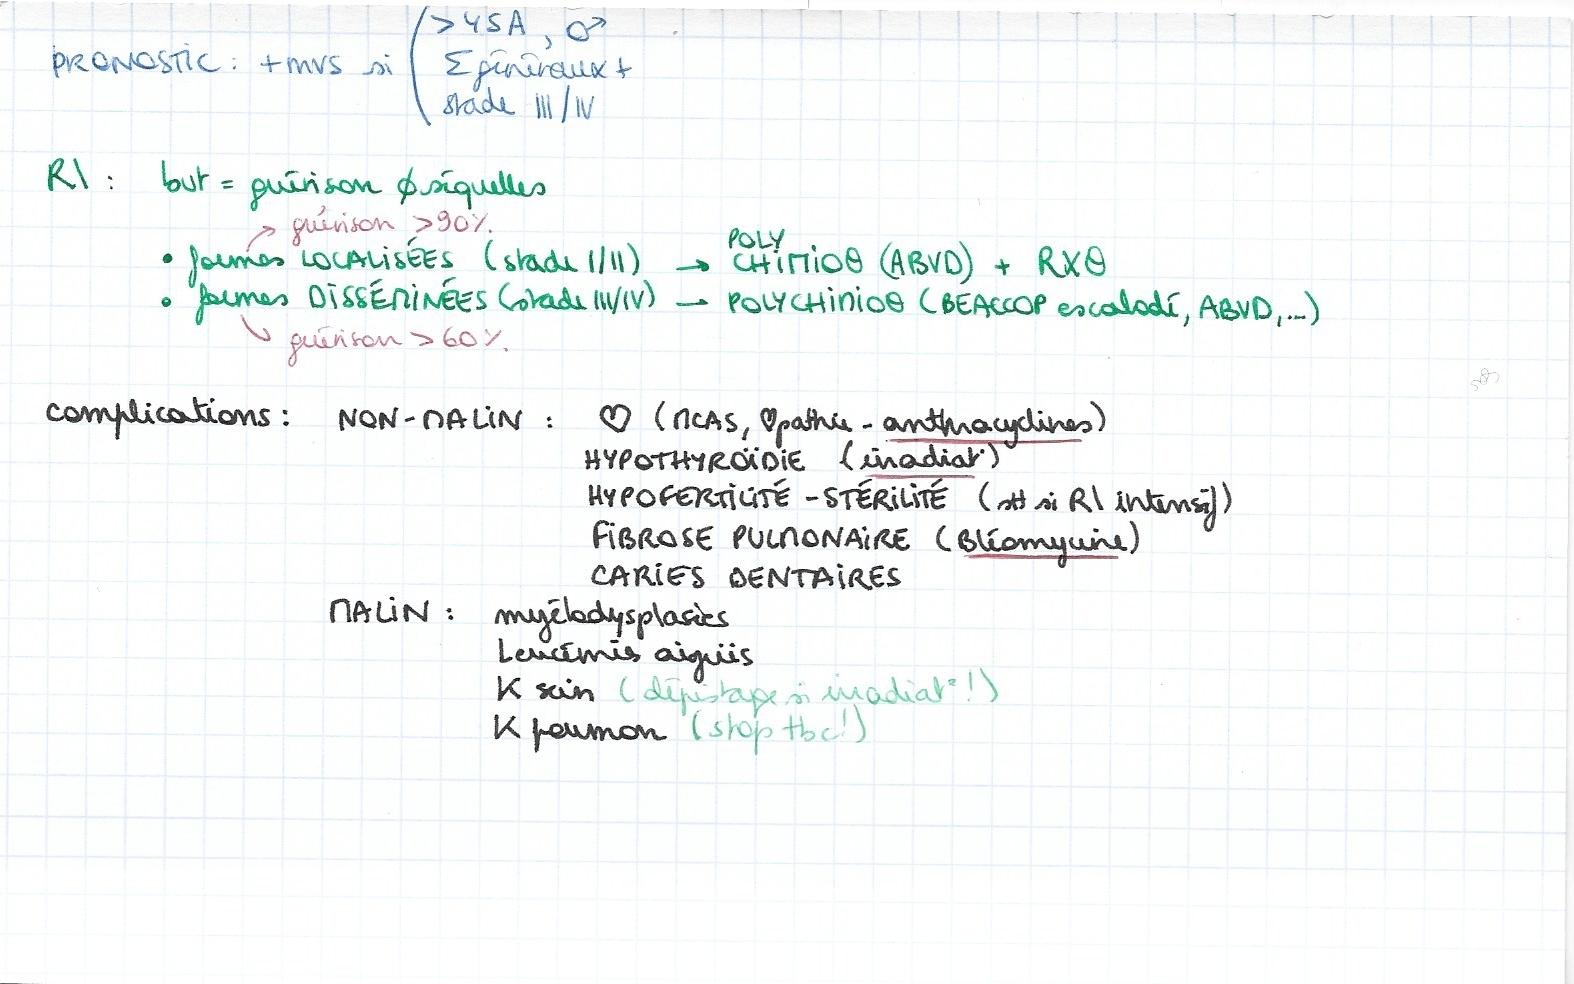 >45A, ♂
PRONOSTIC : +mvs si
Σ généraux +
stade III/IV
R\ : but = guérison ∅ séquelles
guérison >90%.
• formes LOCALISÉES (stade I/II) → POLY CHIMIOθ (ABVD) + RXθ
• formes DISSÉMINÉES (stade III/IV) → POLYCHIMIOθ (BEACCOP escaladé, ABVD,...)
guérison >60%.
complications : NON-MALIN : ♡ (MCAS, ♡pathie - anthracyclines)
HYPOTHYROÏDIE (irradiat°)
HYPOFERTILITÉ - STÉRILITÉ (stt si R\ intensif)
FIBROSE PULMONAIRE (Bléomycine)
CARIES DENTAIRES
MALIN : myélodysplasies
Leucémies aiguës
K sein (dépistage si irradiat° !)
K poumon (stop tbc!)